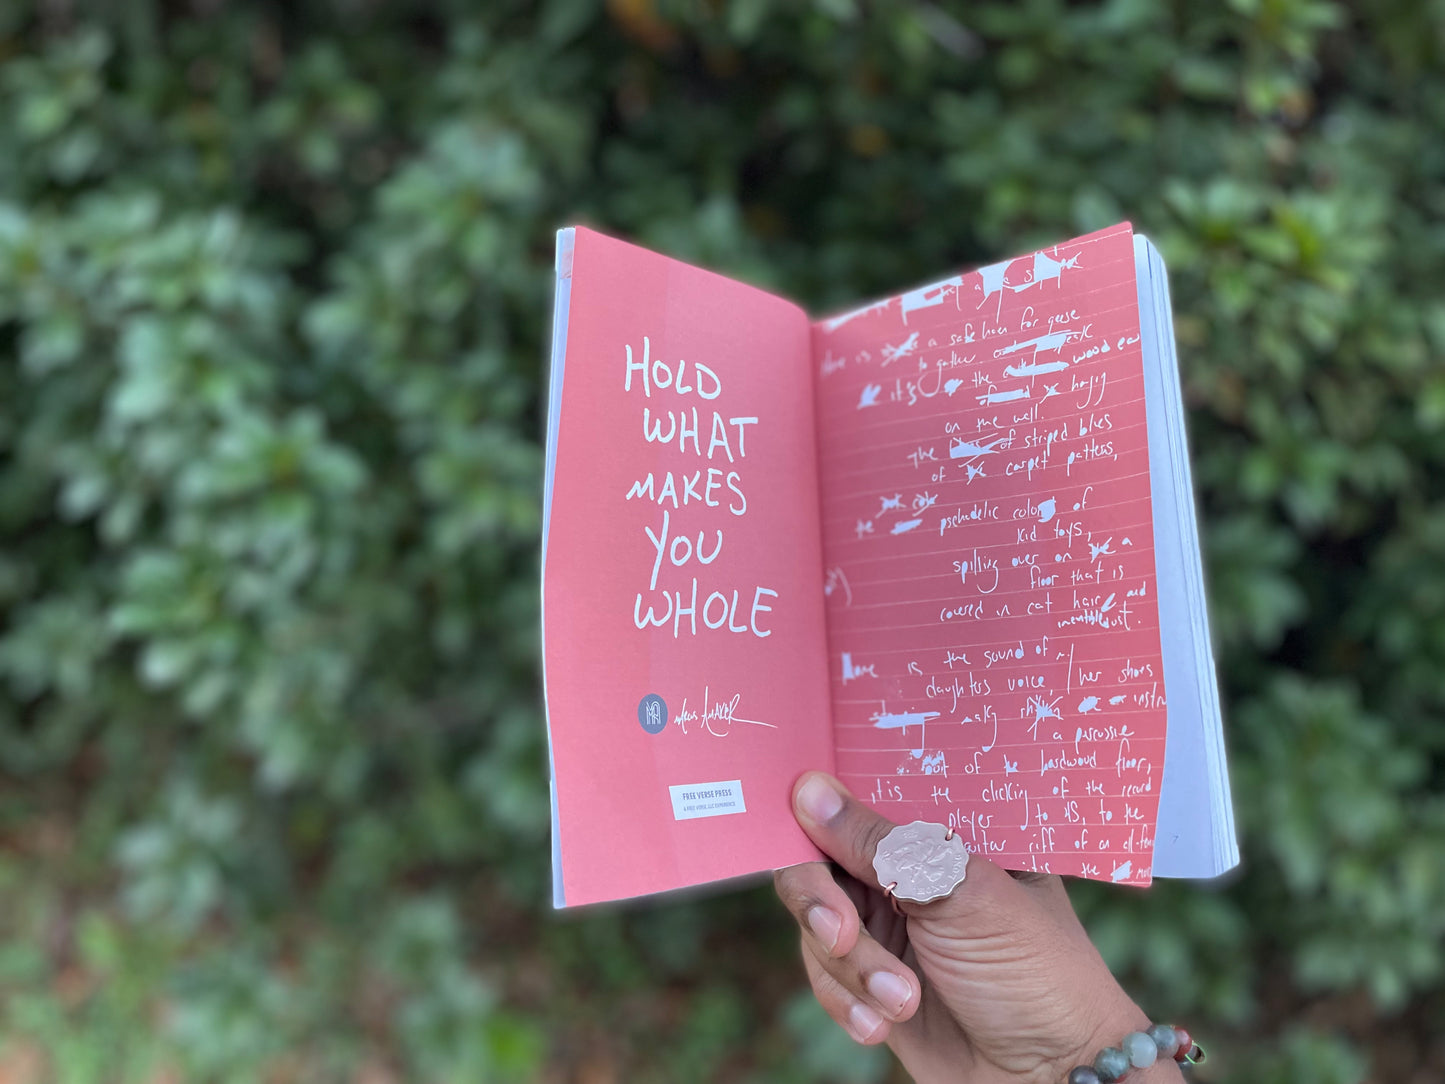 HOLD
WHAT
MAKES
YOU
WHOLE
MA
Marcus AMAKER
FREE VERSE PRESS
A FREE VERSE, LLC EXPERIENCE
a
there is a safe haven for geese
to gather
it's the wood ear
of hanging
on the wall.
The of striped blues
of carpet patterns,
the pschedelic color of
kid toys,
spilling over on a
floor that is
covered in cat hair and
inevitable dust.
Love is the sound of my
daughters voice, / her shoes
making rhythm instru
a percussive
out of the hardwood floor,
it is the clicking of the record
player to 45, to the
guitar riff of an all-fem
it is the